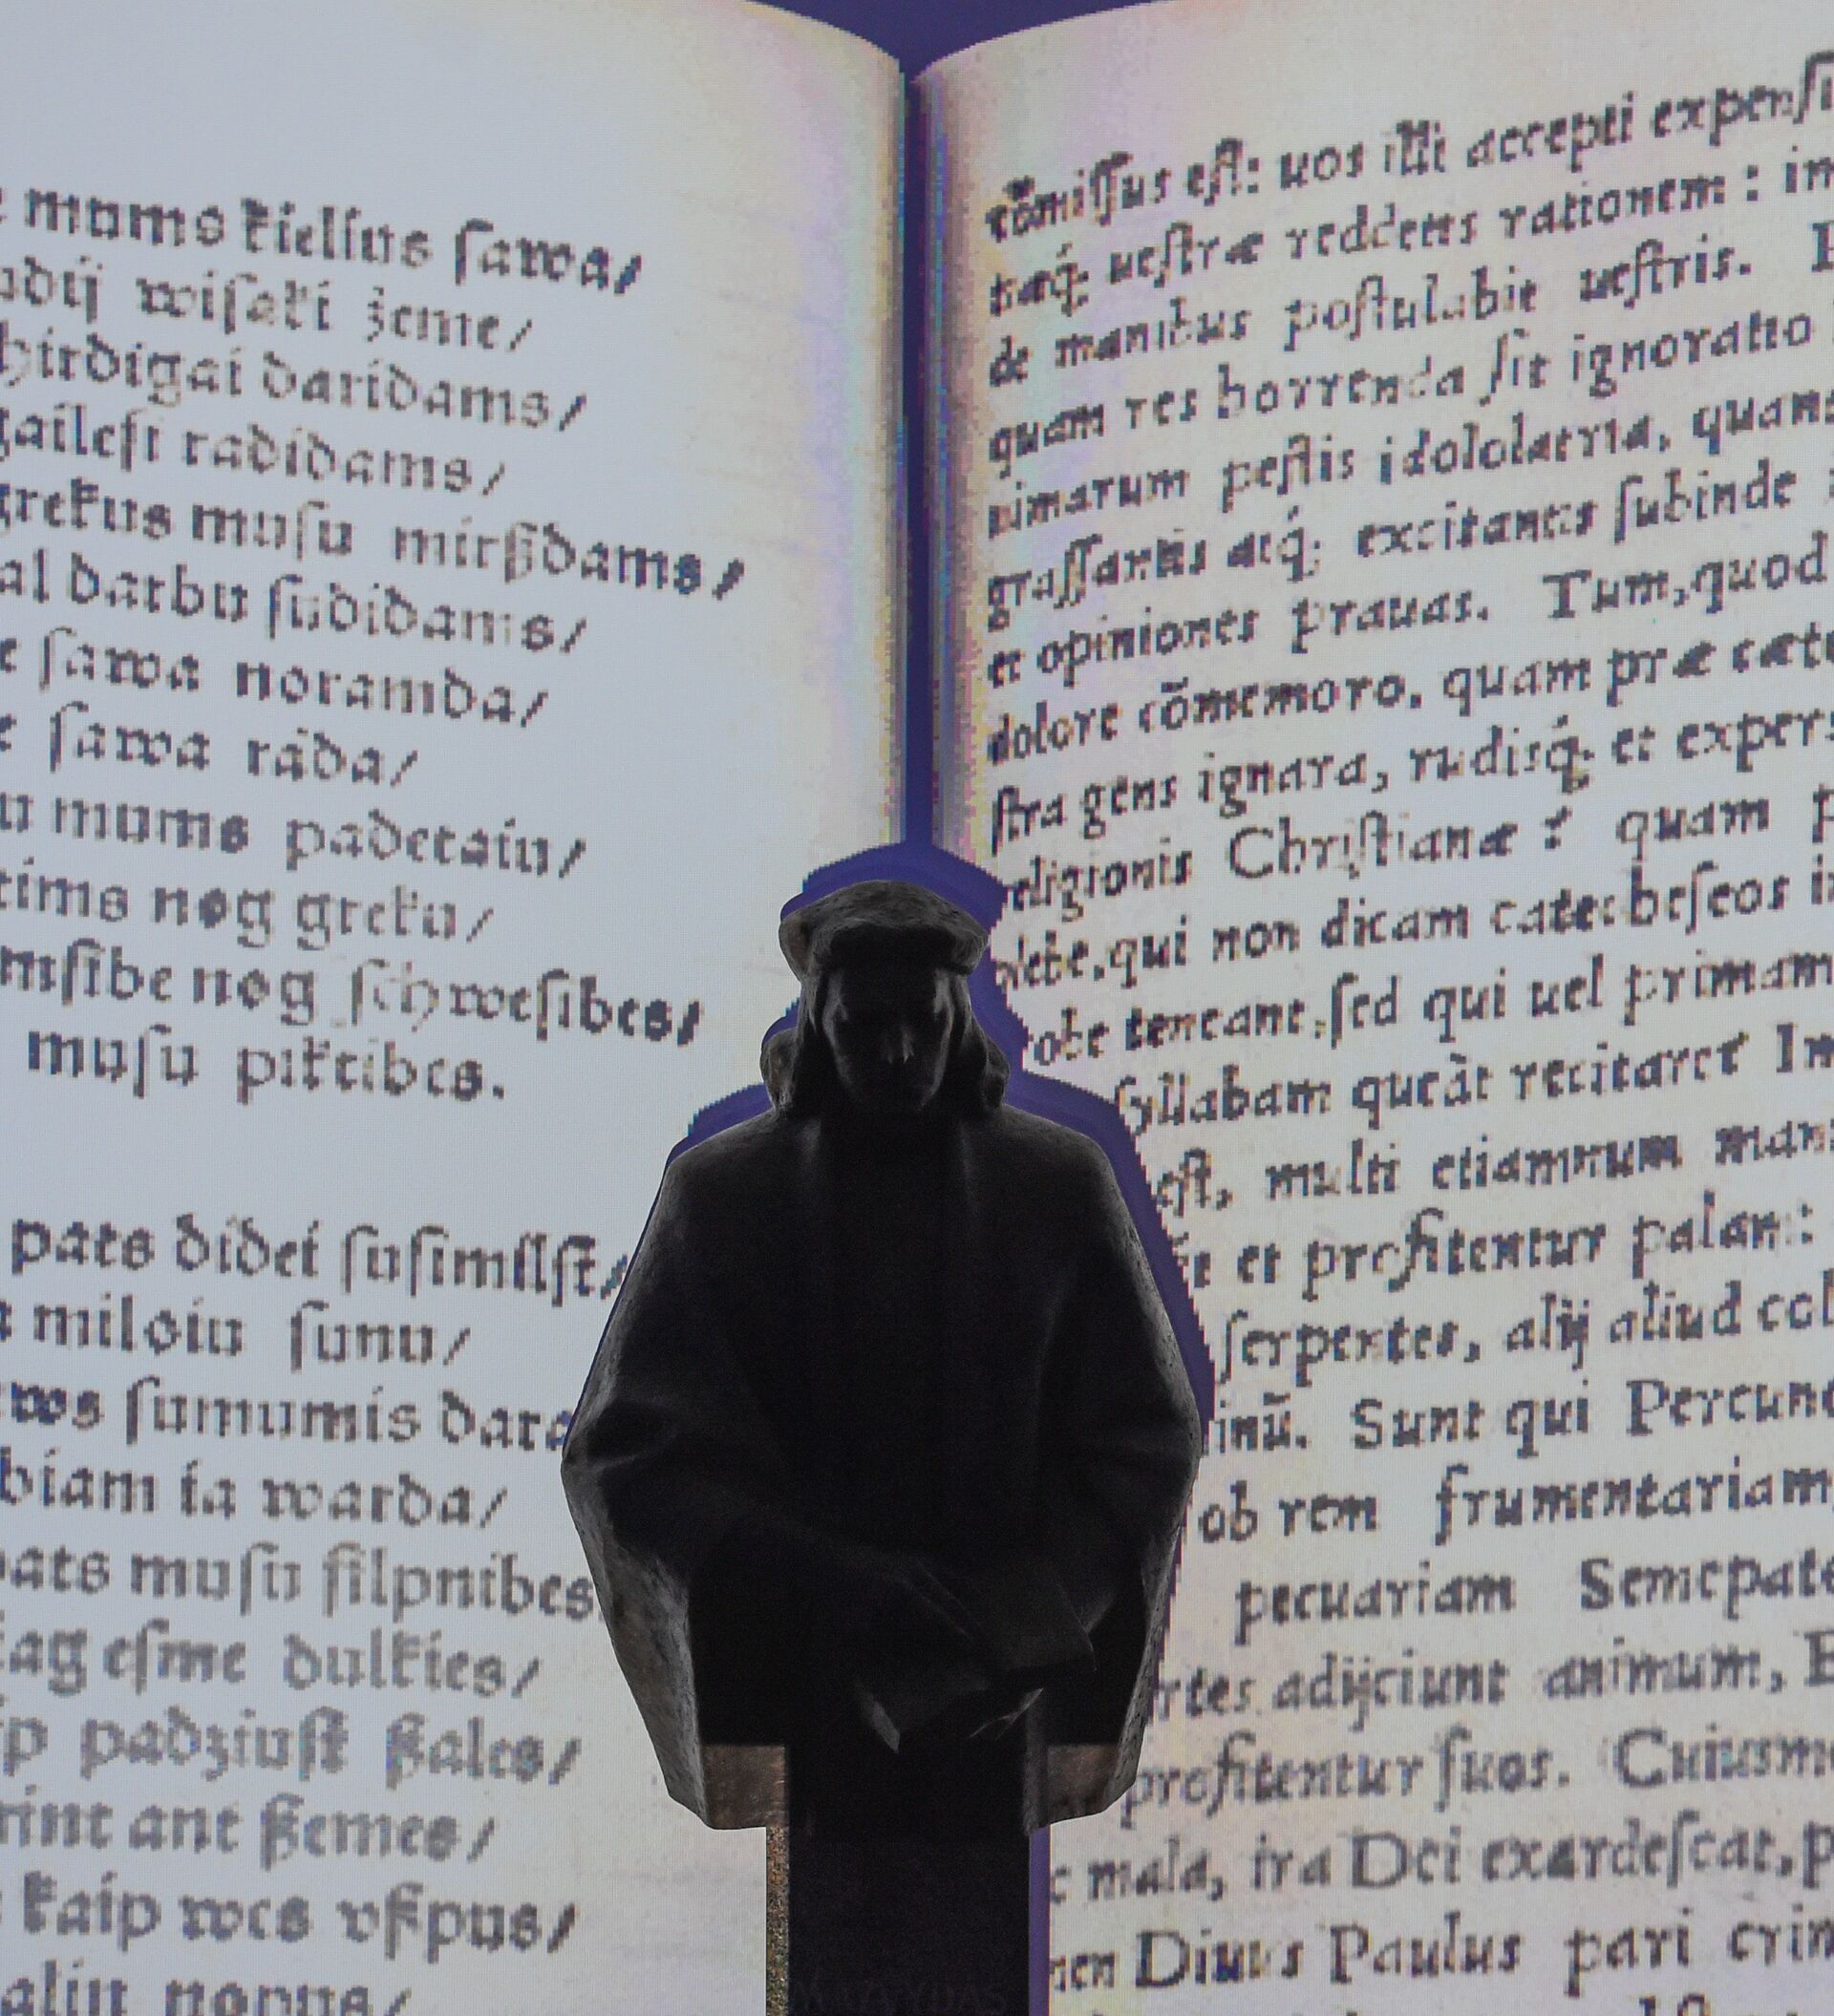 mums kielius sawa/
wisaki zeme/
daridams/
radidams/
musu mirßdams/
darbu sudidams/
sawa noramda/
sawa rada/
mums padetaiu/
nog greku/
nog schwesibes/
musu pikteibes.
pats didei susimilst/
miloiu sunu/
sumumis dara
ia warda/
musu silpnibes
esme dulkies/
padziust ßales/
ant ßemes/
kaip wes
cõmissus est: uos illi accepti expensi
uestræ reddetis rationem: in
de manibus postulabit uestris.
quam res horrenda sit ignoratio
pestis idololatria, quam
excitantes subinde
et opiniones prauas. Tum, quod
dolore cõmemoro, quam præ cæte
stra gens ignara, rudisq́; et expers
religionis Christianæ? quam p
qui non dicam catecheseos in
teneant, sed qui uel primam
syllabam queàt recitare? Im
est, multi etiamnum man
et profitentur palam:
serpentes, alij aliud col
inũ. Sunt qui Percuno
ob rem frumentariam,
pecuariam Semepate
adijciunt animum, E
profitentur suos. Cuiusmo
mala, ira Dei exardescat, p
Diuus Paulus pari crim